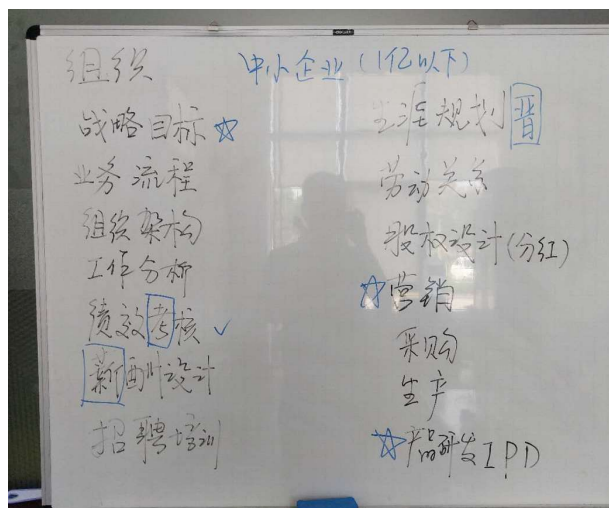 组织
中小企业（1亿以下）
战略目标 ☆
业务流程
组织架构
工作分析
绩效考核 ✓
薪酬设计
招聘培训
生涯规划 晋
劳动关系
股权设计（分红）
☆ 营销
采购
生产
☆ 产品研发 IPD